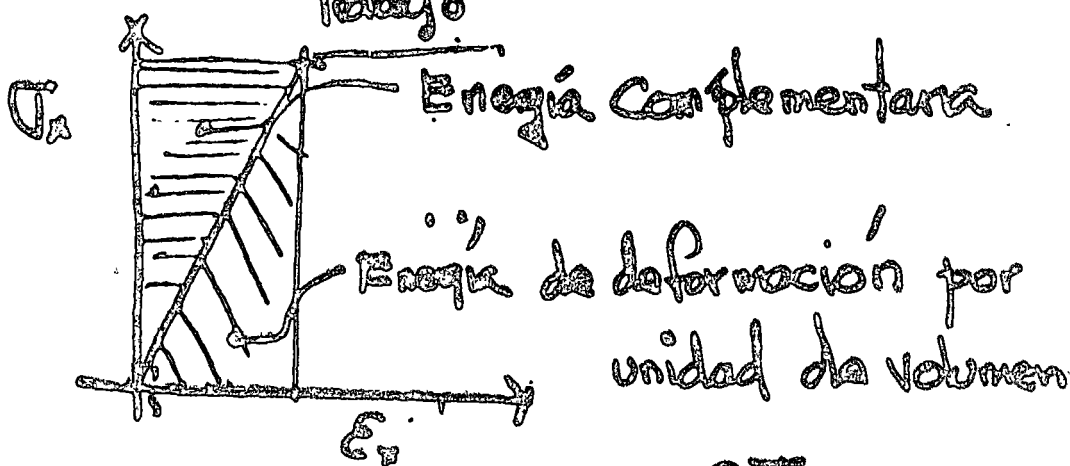 Trabajo
σx
Energía complementaria
Energía de deformación por
unidad de volumen
εx